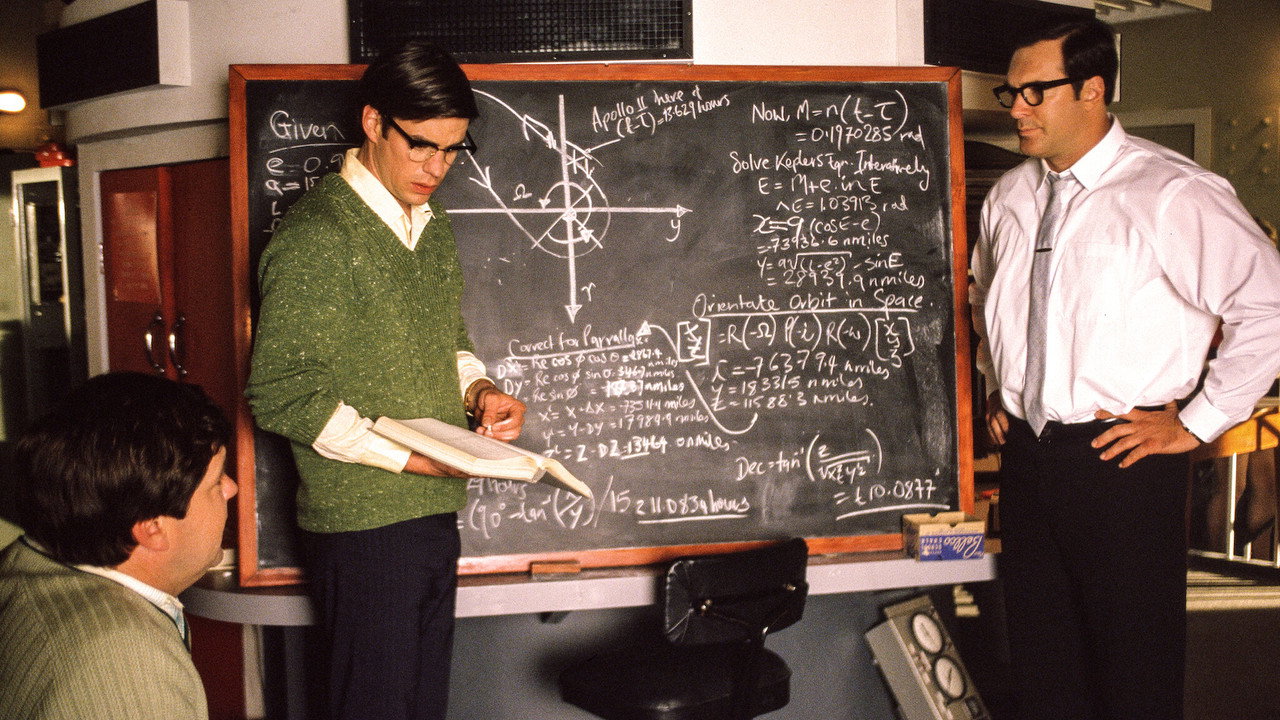 Given
e = 0.9
a = 15
Apollo 11 here &
(t-τ) = 13.629 hours
y
Ω
r
Now, M = n(t-τ)
= 0.1970285 rad
Solve Keplers Eqn. Interatively
E = M+e.inE
∧E = 1.03913 rad
x = a (cosE-e)
= -73936.6 nmiles
y = a√(1-e²) - sinE
= 28939.9 nmiles
Orientate Orbit in Space.
= R(-Ω) R(-i) R(-ω)
x = -76379.4 nmiles
y = 18331.5 nmiles
z = 11588.3 nmiles.
Correct for Parrallax.
DX = Re cos ø cos θ = nmiles
Dy = Re cos ø sin θ = nmiles
= Re sin ø = nmiles
x' = x - ΔX = nmiles
y' = y - DY = 17989.9 nmiles
z' = z - DZ = 13464. nmiles
Dec = tan⁻¹ (z / √x²+y²)
= 10.0877
hours
= (90° - tan⁻¹(x/y)) / 15 = 11.0839 hours
Belco